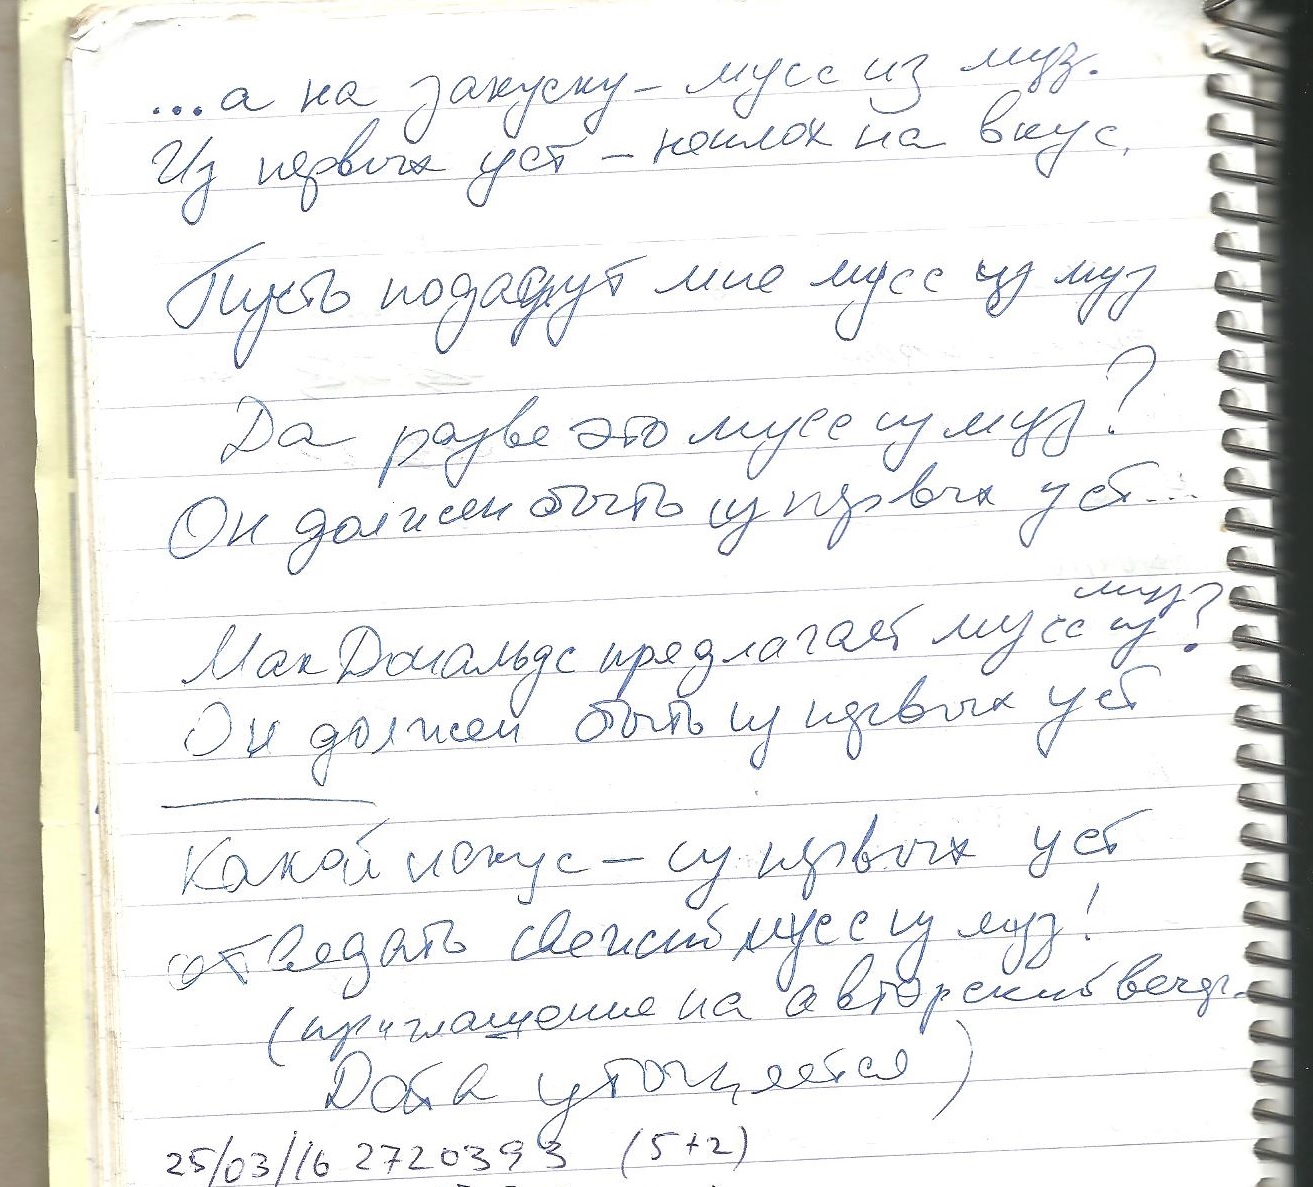 ...а на закуску – мусс из муз.
Из первых уст – неплох на вкус,
Пусть подадут мне мусс из муз
Да разве это мусс из муз?
Он должен быть из первых уст...
МакДональдс предлагает мусс из муз?
Он должен быть из первых уст
Какой искус – из первых уст
отведать свежий мусс из муз!
(приглашение на авторский вечер.
Дата уточняется)
25/03/16 2720393 (5+2)